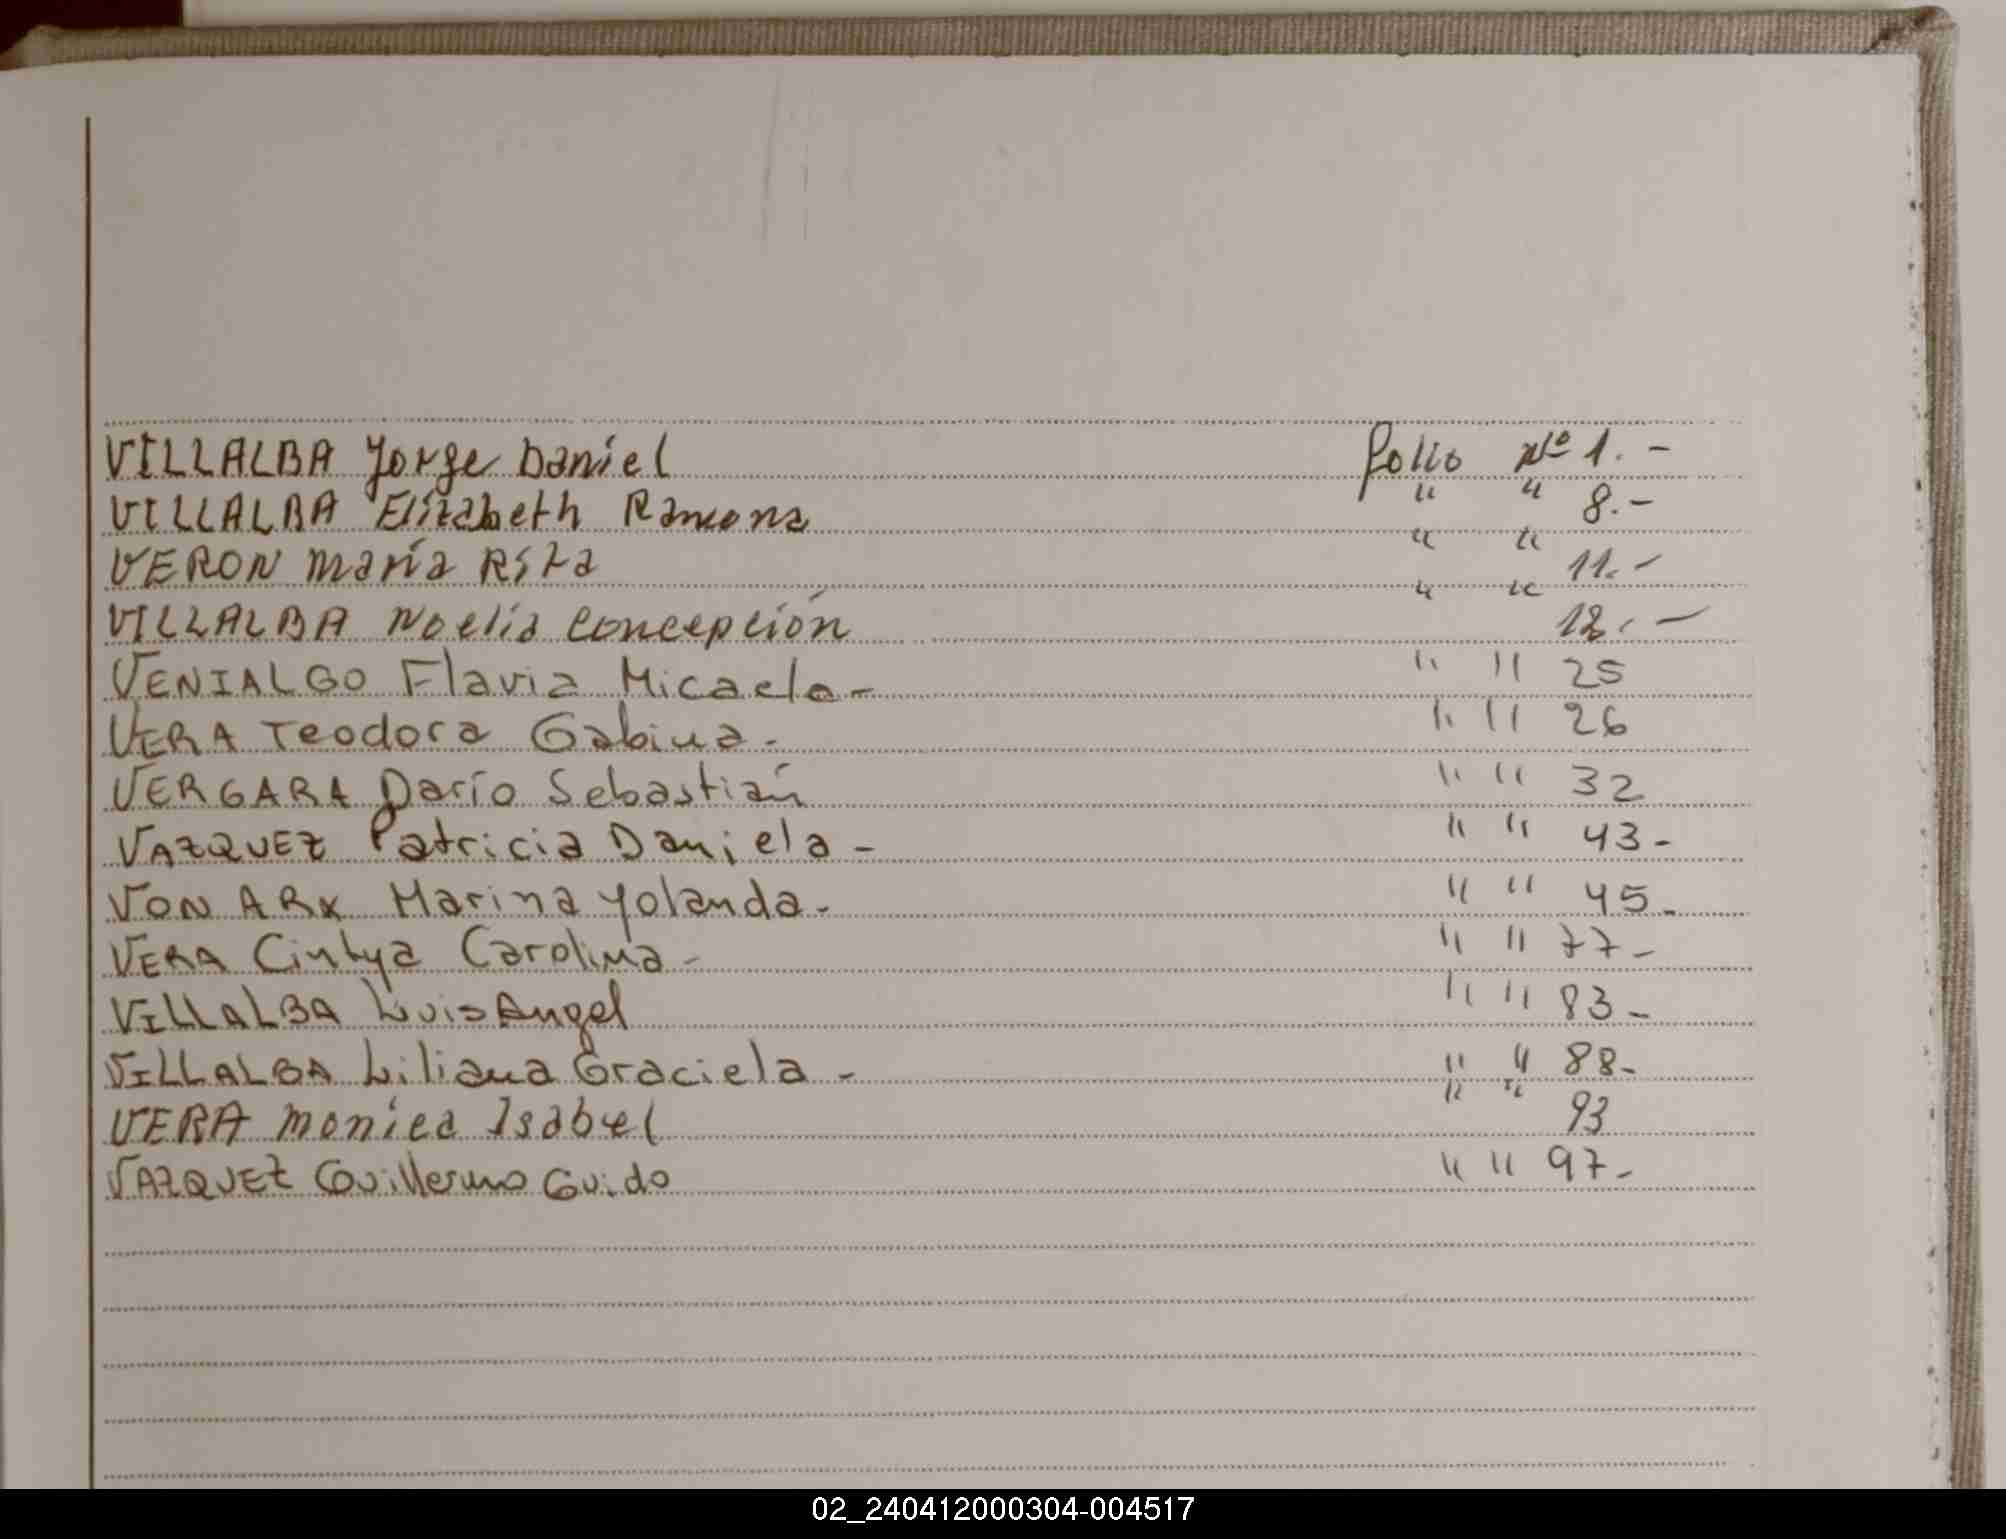 VILLALBA Jorge Daniel folio Nº 1.-
VILLALBA Elizabeth Ramona " " 8.-
VERON María Rita " " 11.-
VILLALBA Noelia Concepción " " 12.-
VENIALGO Flavia Micaela- " " 25
VERA Teodora Gabina- " " 26
VERGARA Darío Sebastián " " 32
VAZQUEZ Patricia Daniela - " " 43-
VON ARX Marina Yolanda- " " 45-
VERA Cintya Carolina- " " 77-
VILLALBA Luis Angel " " 83-
VILLALBA Liliana Graciela - " " 88-
VERA Monica Isabel " " 93
VAZQUEZ Guillermo Guido " " 97-
02_240412000304-004517